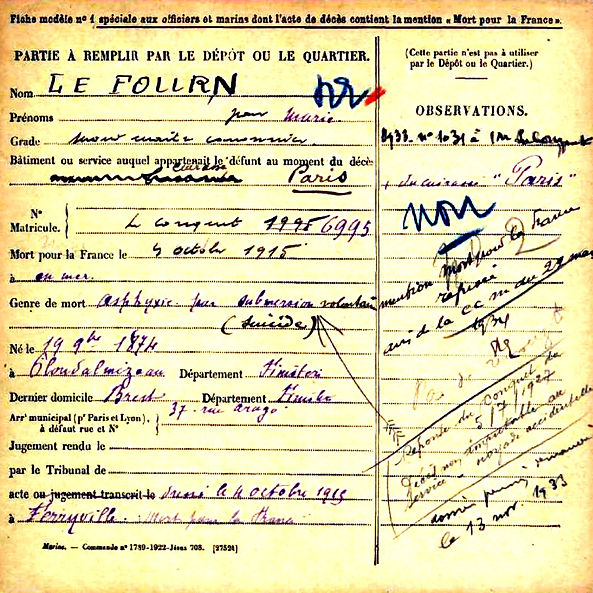 Fiche modèle nº 1 spéciale aux officiers et marins dont l'acte de décès contient la mention « Mort pour la France ».
PARTIE À REMPLIR PAR LE DÉPÔT OU LE QUARTIER.
Nom LE FOURN
Prénoms Jean Marie
Grade maître canonnier
Bâtiment ou service auquel appartenait le défunt au moment du décès
cuirassé
Paris
Nº Matricule. Le Conquet 6995
Mort pour la France le 4 octobre 1915
à en mer.
Genre de mort Asphyxie par submersion volontaire
(suicide)
Né le 19 9bre 1874
à Ploudalmézeau Département Finistère
Dernier domicile Brest Département Finistère
Arrt municipal (pr Paris et Lyon), à défaut rue et Nº 37 rue Arago
Jugement rendu le
par le Tribunal de
acte ou jugement transcrit le dressé le 4 octobre 1915
à Ferryville. Mort pour la France
Marine. — Commande nº 1789-1922-Jésus 708. [27524]
(Cette partie n'est pas à utiliser
par le Dépôt ou le Quartier.)
OBSERVATIONS.
du cuirassé "Paris"
Non
mention Mort pour la France
refusée
avis de la CC m du 29 mai
1934
Réponse du Conquet du
5/7/1927
Décès non imputable au
service - noyade accidentelle
le 13 nov. 1933